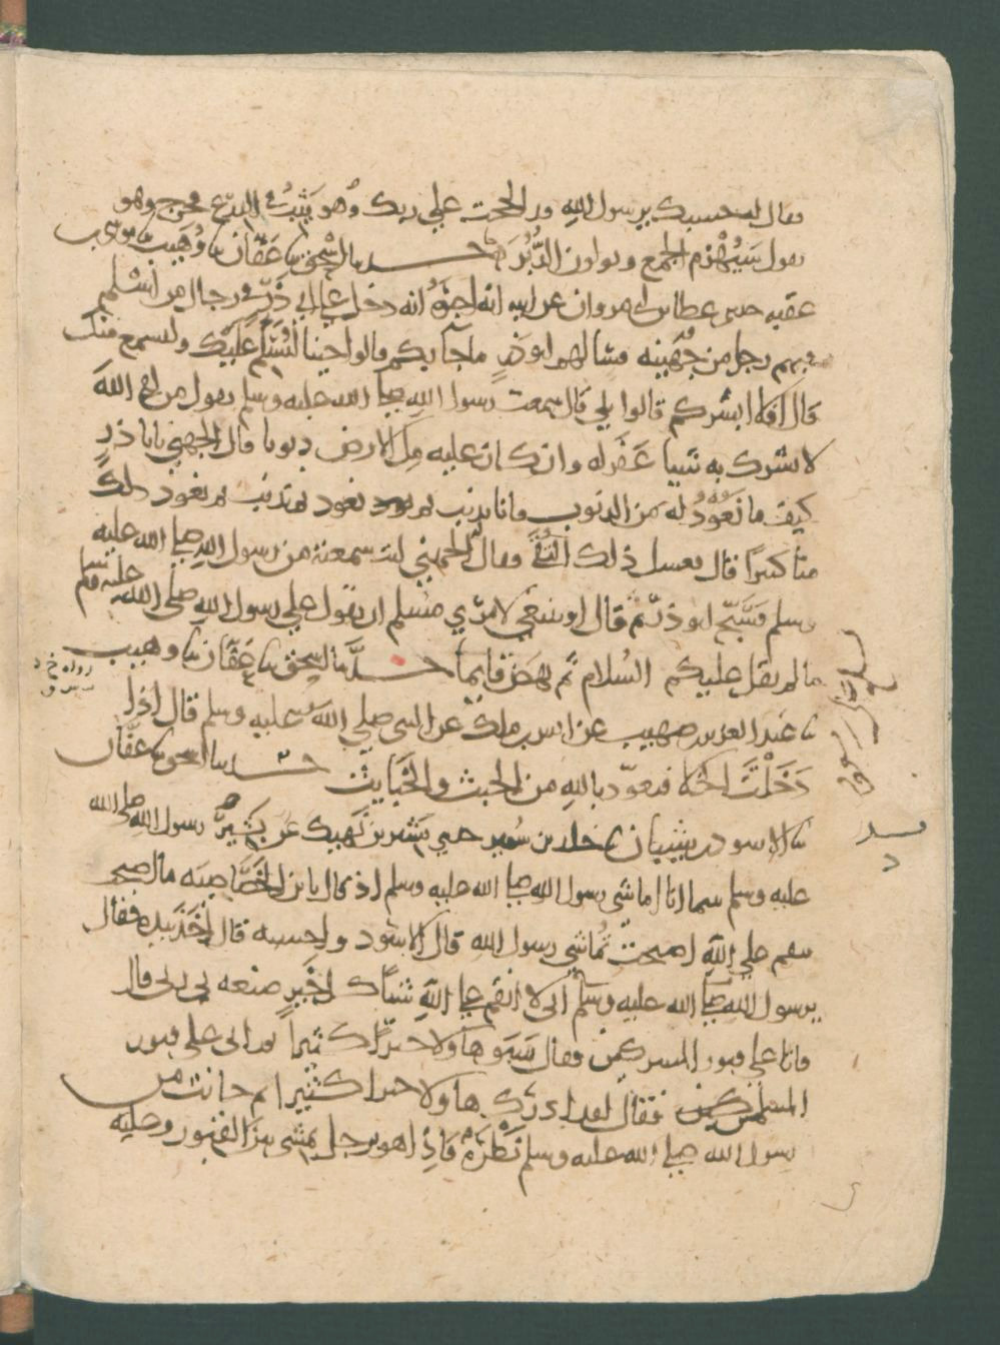 فقال له حسبك يرسول الله قد الححت علي ربك وهو يثب في الدرع فخرج وهو
يقول سيهزم الجمع ويولون الدبر حدثنا اسحق نا عفان نا وهيب نا موسى بن
عقبه حدثني عطا بن ابي مروان عن ابيه انه اخبره انه دخل على ابي ذر في رجال من اسلم
فيهم رجل من جهينه فسالهم ابو ذر ما جآ بكم قالوا جينا لنسلم عليك ولنسمع منك
قال افلا ابشركم قالوا بلي قال سمعت رسول الله صلى الله عليه وسلم يقول من لقى الله
لا يشرك به شيا غفر له وان كان عليه مل الارض ذنوبا قال الجهني يابا ذر
كيف ما نعود له من الذنوب فانا نذنب ثم نعود ثم نذنب ثم نعود ذلك
منا كثيرا قال فعسل ذلك وقال الجهني انت سمعته من رسول الله صلى الله عليه
وسلم فسبح ابو ذر ثم قال او ينبغي لامرئ مسلم ان يقول علي رسول الله صلى الله عليه وسلم
ما لم يقل عليكم السلام ثم نهض قايما حدثنا اسحق نا عفان نا وهيب
نا عبد العزيز صهيب عن انس بن ملك عن النبي صلى الله عليه وسلم قال اذا
دخلت الخلا فتعوذ بالله من الخبث والخبايث حدثنا اسحق نا عفان
نا الاسود بن شيبان نا خلد بن سمير حدثني بشير بن نهيك عن بشير رسول الله صلى الله
عليه وسلم بينما انا اماشي رسول الله صلى الله عليه وسلم اذ قال يا بن الخصاصيه ما اصبحت
تنقم علي الله اصبحت تماشي رسول الله قال الاسود واحسبه قال اخذ بيده فقال
يرسول الله صلى الله عليه وسلم لا انقم على الله شيا كل خير صنعه بي ربي قال
فاتا علي قبور المشركين فقال سبقوا هاولا خيرا كثيرا ثم اتى على قبور
المسلمين فقال لقد ادرك هاولا خيرا كثيرا ثم حانت من
رسول الله صلى الله عليه وسلم نظره فاذا هو برجل يمشي بين القبور وعليه